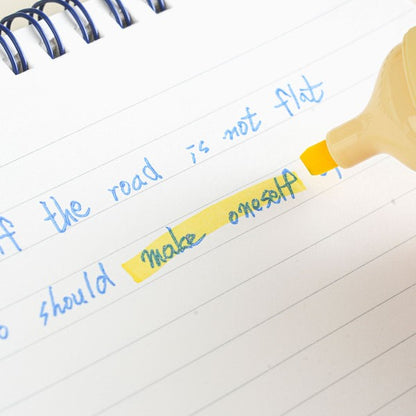 the road is not flat
should make oneself